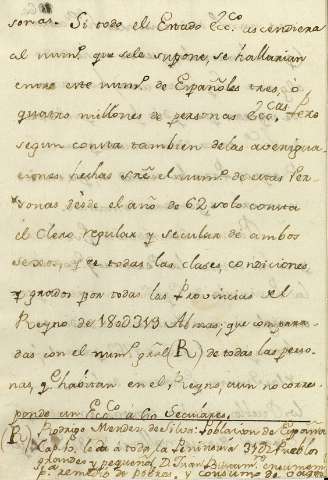 sonas. Si todo el Estado Ecc.co ascendiera
al num.o que se le supone, se hallarian
entre este num.o de Españoles tres, ò
quatro millones de personas Ecc.cas Pero
segun consta tambien de las averigua-
ciones hechas sre el num.o de estas Per-
sonas desde el año de 62 solo consta
el Clero regular y secular de ambos
sexos, y de todas las clases, condiciones,
y grados por todas las Provincias del
Reyno de 180@313 Almas; que compara-
das con el num.o gral (R) de todas las perso-
nas, q.e habitan en el Reyno, aun no corres-
ponde un Ecc.co a Seculares.
(R) Rodrigo Mendez de Silva: Poblacion de España
Cap. le da a toda la Peninsula Pueblos
grandes y pequeños, D. Juan
de pobres, y consumo de